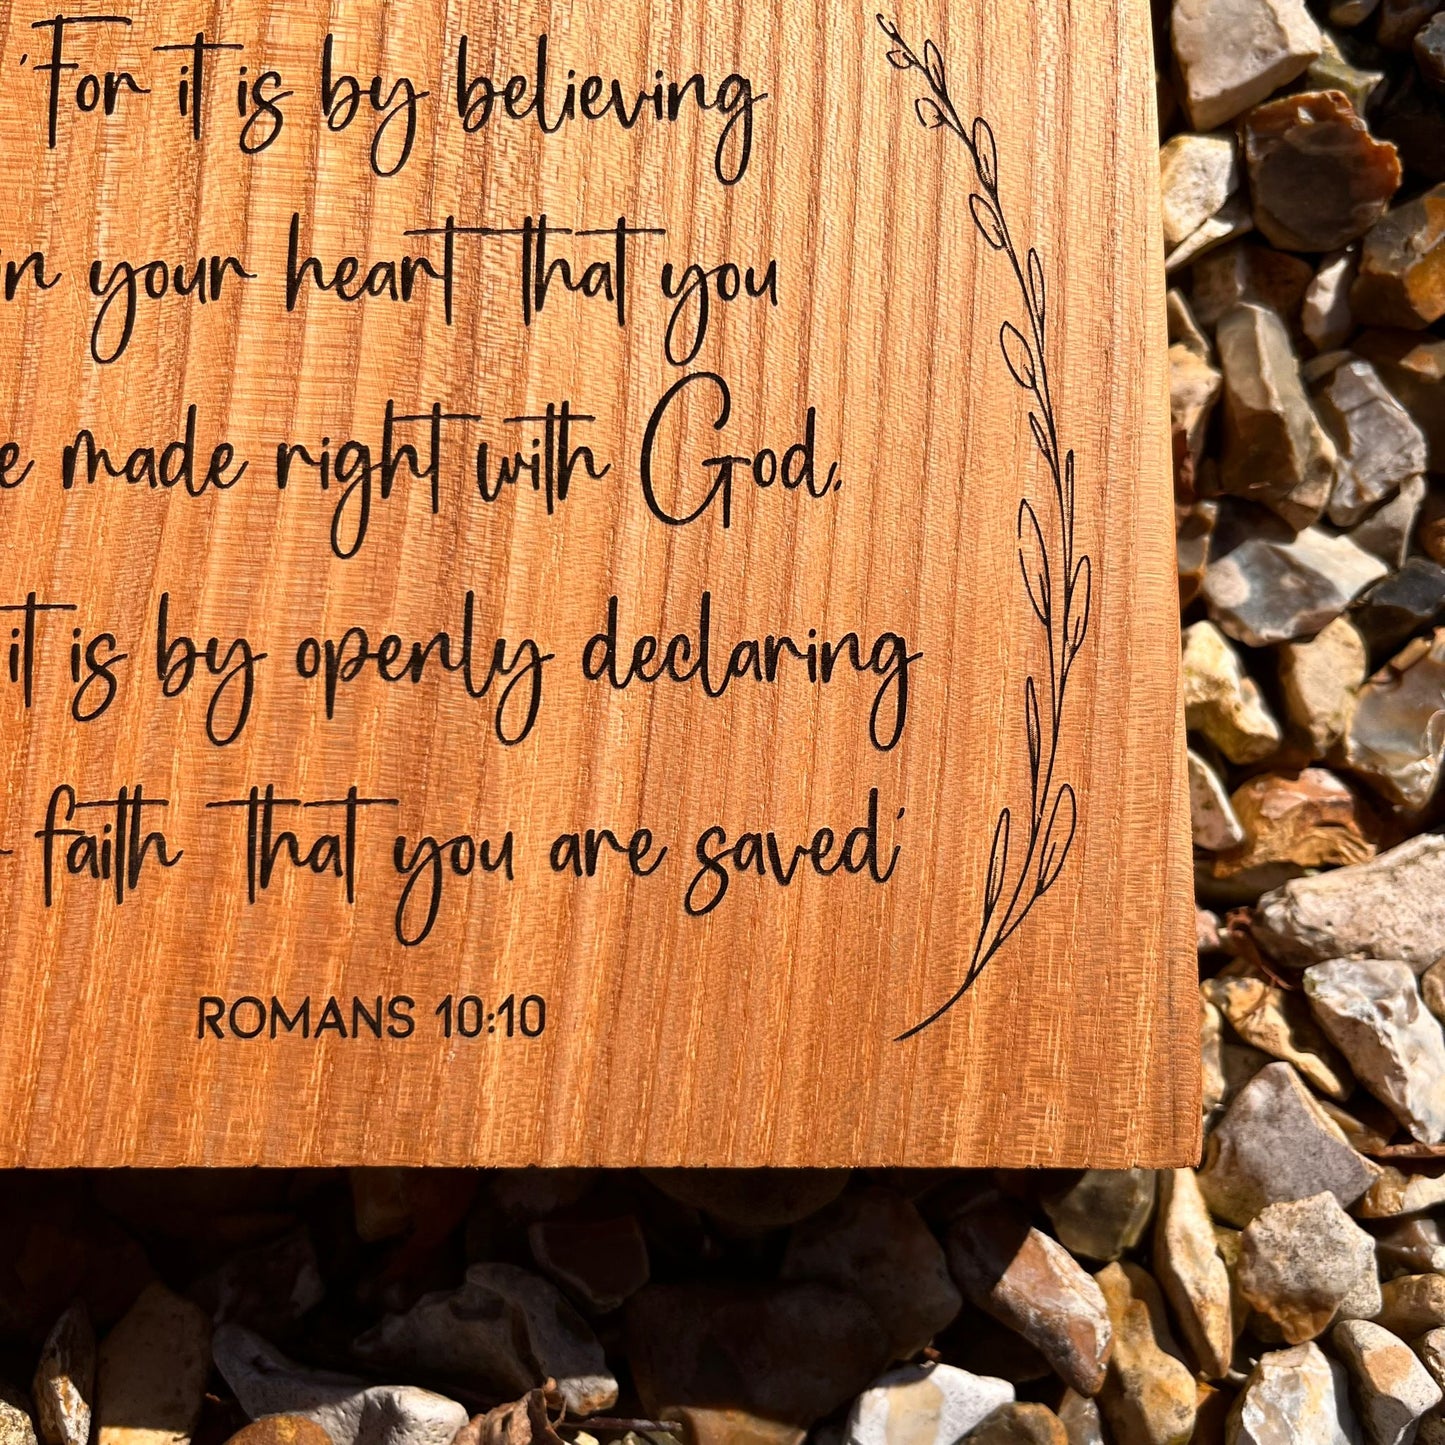 'For it is by believing
in your heart that you
made right with God.
it is by openly declaring
faith that you are saved'
ROMANS 10:10